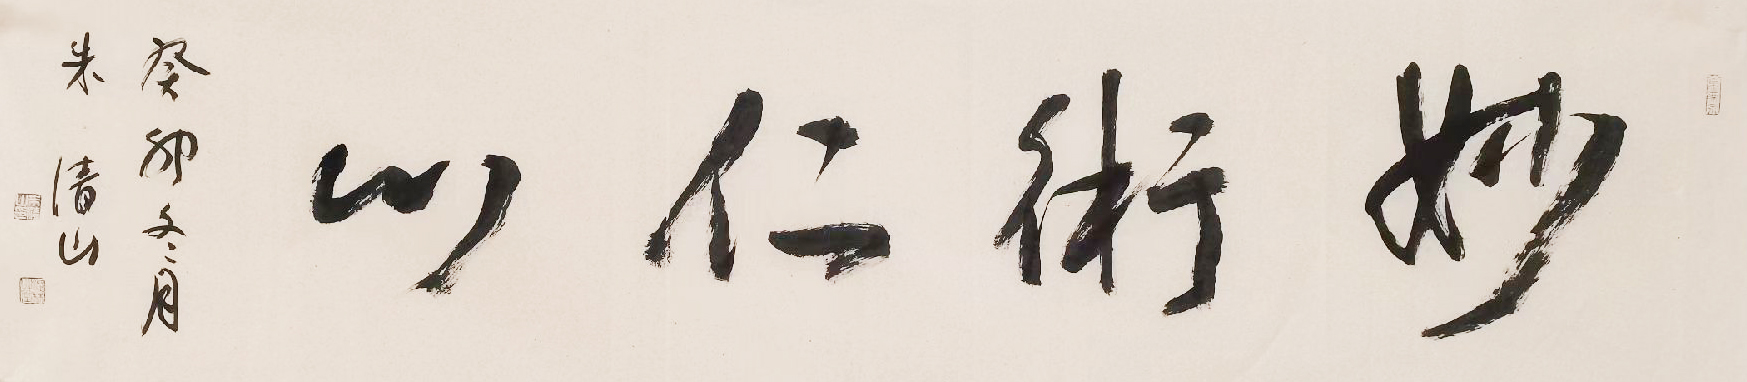 妙術仁心
癸卯冬月
朱清山